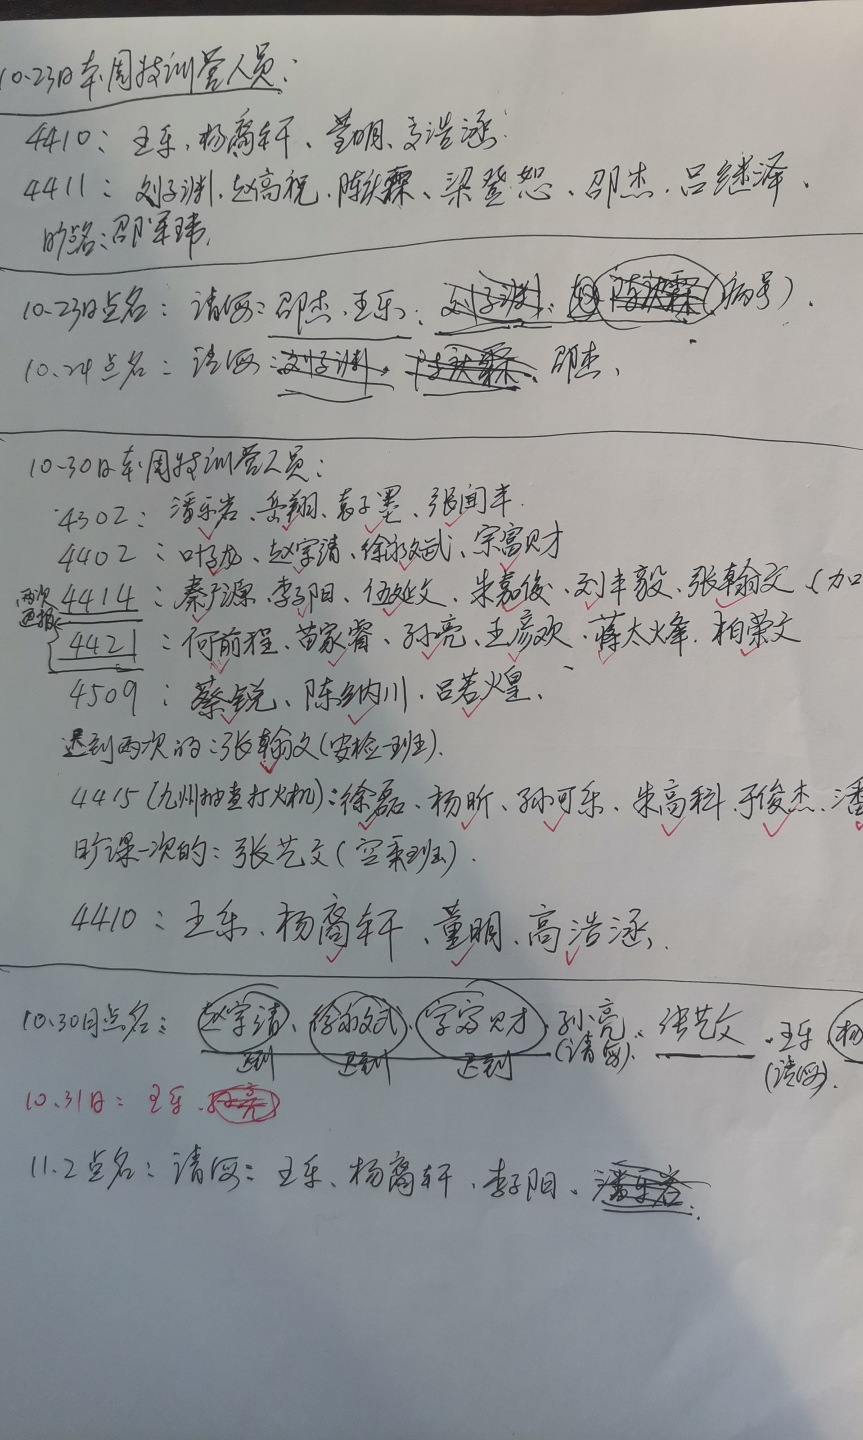 10.23日本周特训营人员：
4410：王乐、杨裔轩、董明、高浩涵
4411：刘子渊、赵高祝、陈秋霖、梁登恕、邵杰、吕继泽、
旷点名：邵军玮，
10.23日点名：请假：邵杰、王乐、刘子渊、陈秋霖（病号）．
10.24点名：请假：刘子渊、陈秋霖、邵杰、
10.30日本周特训营人员：
4302：潘乐岩、岳翔、袁子墨、张闻丰．
4402：叶子龙、赵宇清、徐永斌、宗富财
两次通报
4414：秦广源、李子阳、伍延文、朱嘉俊、刘丰毅、张翰文、（加
4421：何前程、苗家睿、孙亮、王彦欢、蒋太火峰、柏荣文
4509：蔡锐、陈纳川、吕若煌、
迟到两次的：张翰文（安检一班）．
4415（九州抽查打火机）：徐磊、杨昕、孙可乐、朱高科、于俊杰、潘
旷课一次的：张艺文（空乘班）．
4410：王乐、杨裔轩、董明、高浩涵，
10.30日点名：赵宇清、徐永斌、宗富财、孙亮、张艺文、王乐、杨
迟到 迟到 迟到 （请假） （请假）．
10.31日：王乐、孙亮
11.2点名：请假：王乐、杨裔轩、李子阳、潘乐岩．